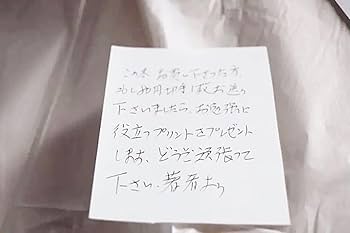 この本お買い下さった方、
もし切手1枚お送り
下さいましたら、お勉強に
役立つプリントをプレゼント
します。どうぞ頑張って
下さい。著者より